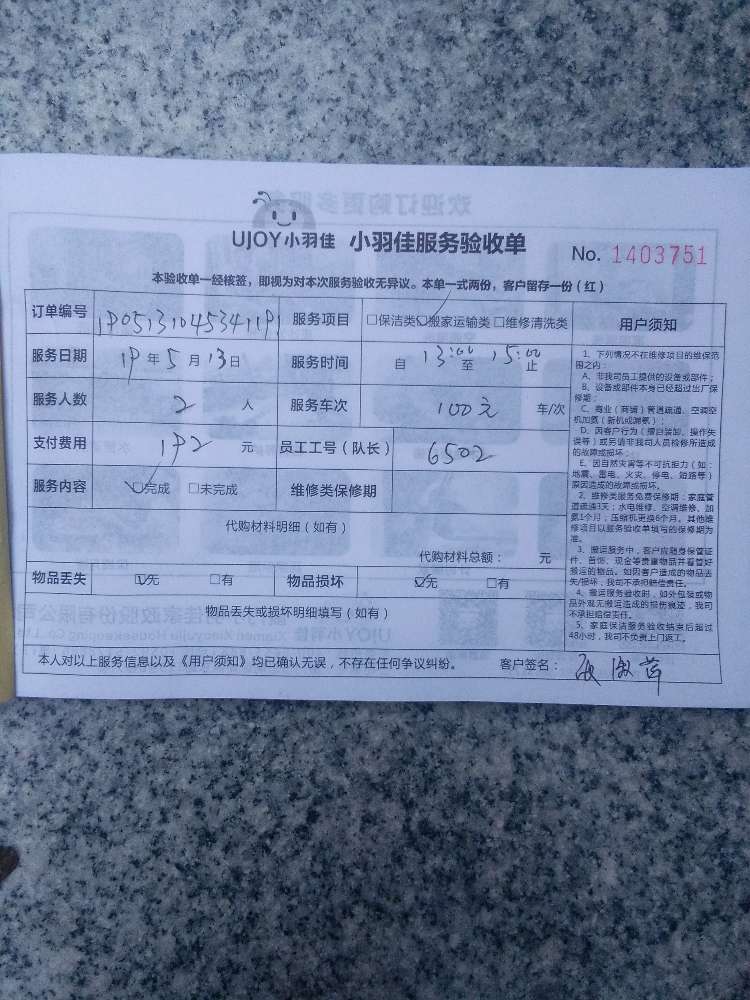 UJOY小羽佳 小羽佳服务验收单 No. 1403751
本验收单一经核签，即视为对本次服务验收无异议。本单一式两份，客户留存一份（红）
订单编号 1905131045341191 服务项目 □保洁类 □搬家运输类 □维修清洗类
服务日期 19年5月13日 服务时间 自 13:00 至 15:00 止
服务人数 2 人 服务车次 100元 车/次
支付费用 192 元 员工工号（队长） 6502
服务内容 □完成 □未完成 维修类保修期
代购材料明细（如有）
代购材料总额： 元
物品丢失 □无 □有 物品损坏 □无 □有
物品丢失或损坏明细填写（如有）
本人对以上服务信息以及《用户须知》均已确认无误，不存在任何争议纠纷。 客户签名：
用户须知
1、下列情况不在维修项目的维保范
围之内：
A、非我司员工提供的设备或部件；
B、设备或部件本身已经超过出厂保
修期；
C、商业（商铺）管道疏通、空调空
机加氨（新机或漏氨）；
D、因客户行为（擅自装卸、操作失
误等）或另请非我司人员检修所造成
的故障或损坏；
E、因自然灾害等不可抗拒力（如：
地震、雷电、火灾、停电、短路等）
原因造成的故障或损坏。
2、维修类服务免费保修期：家庭管
道疏通3天；水电维修、空调维修、加
氨1个月；压缩机更换6个月。其他维
修项目以服务验收单填写的保修期为
准。
3、搬运服务中，客户应随身保管证
件、首饰、现金等贵重物品并看管好
搬运的物品。如因客户造成的物品丢
失/损坏，我司不承担赔偿责任。
4、搬运服务验收时，如外包装或物
品外观无搬运造成的损伤痕迹，我司
不承担赔偿责任。
5、家庭保洁服务验收结束后超过
48小时，我司不负责上门返工。